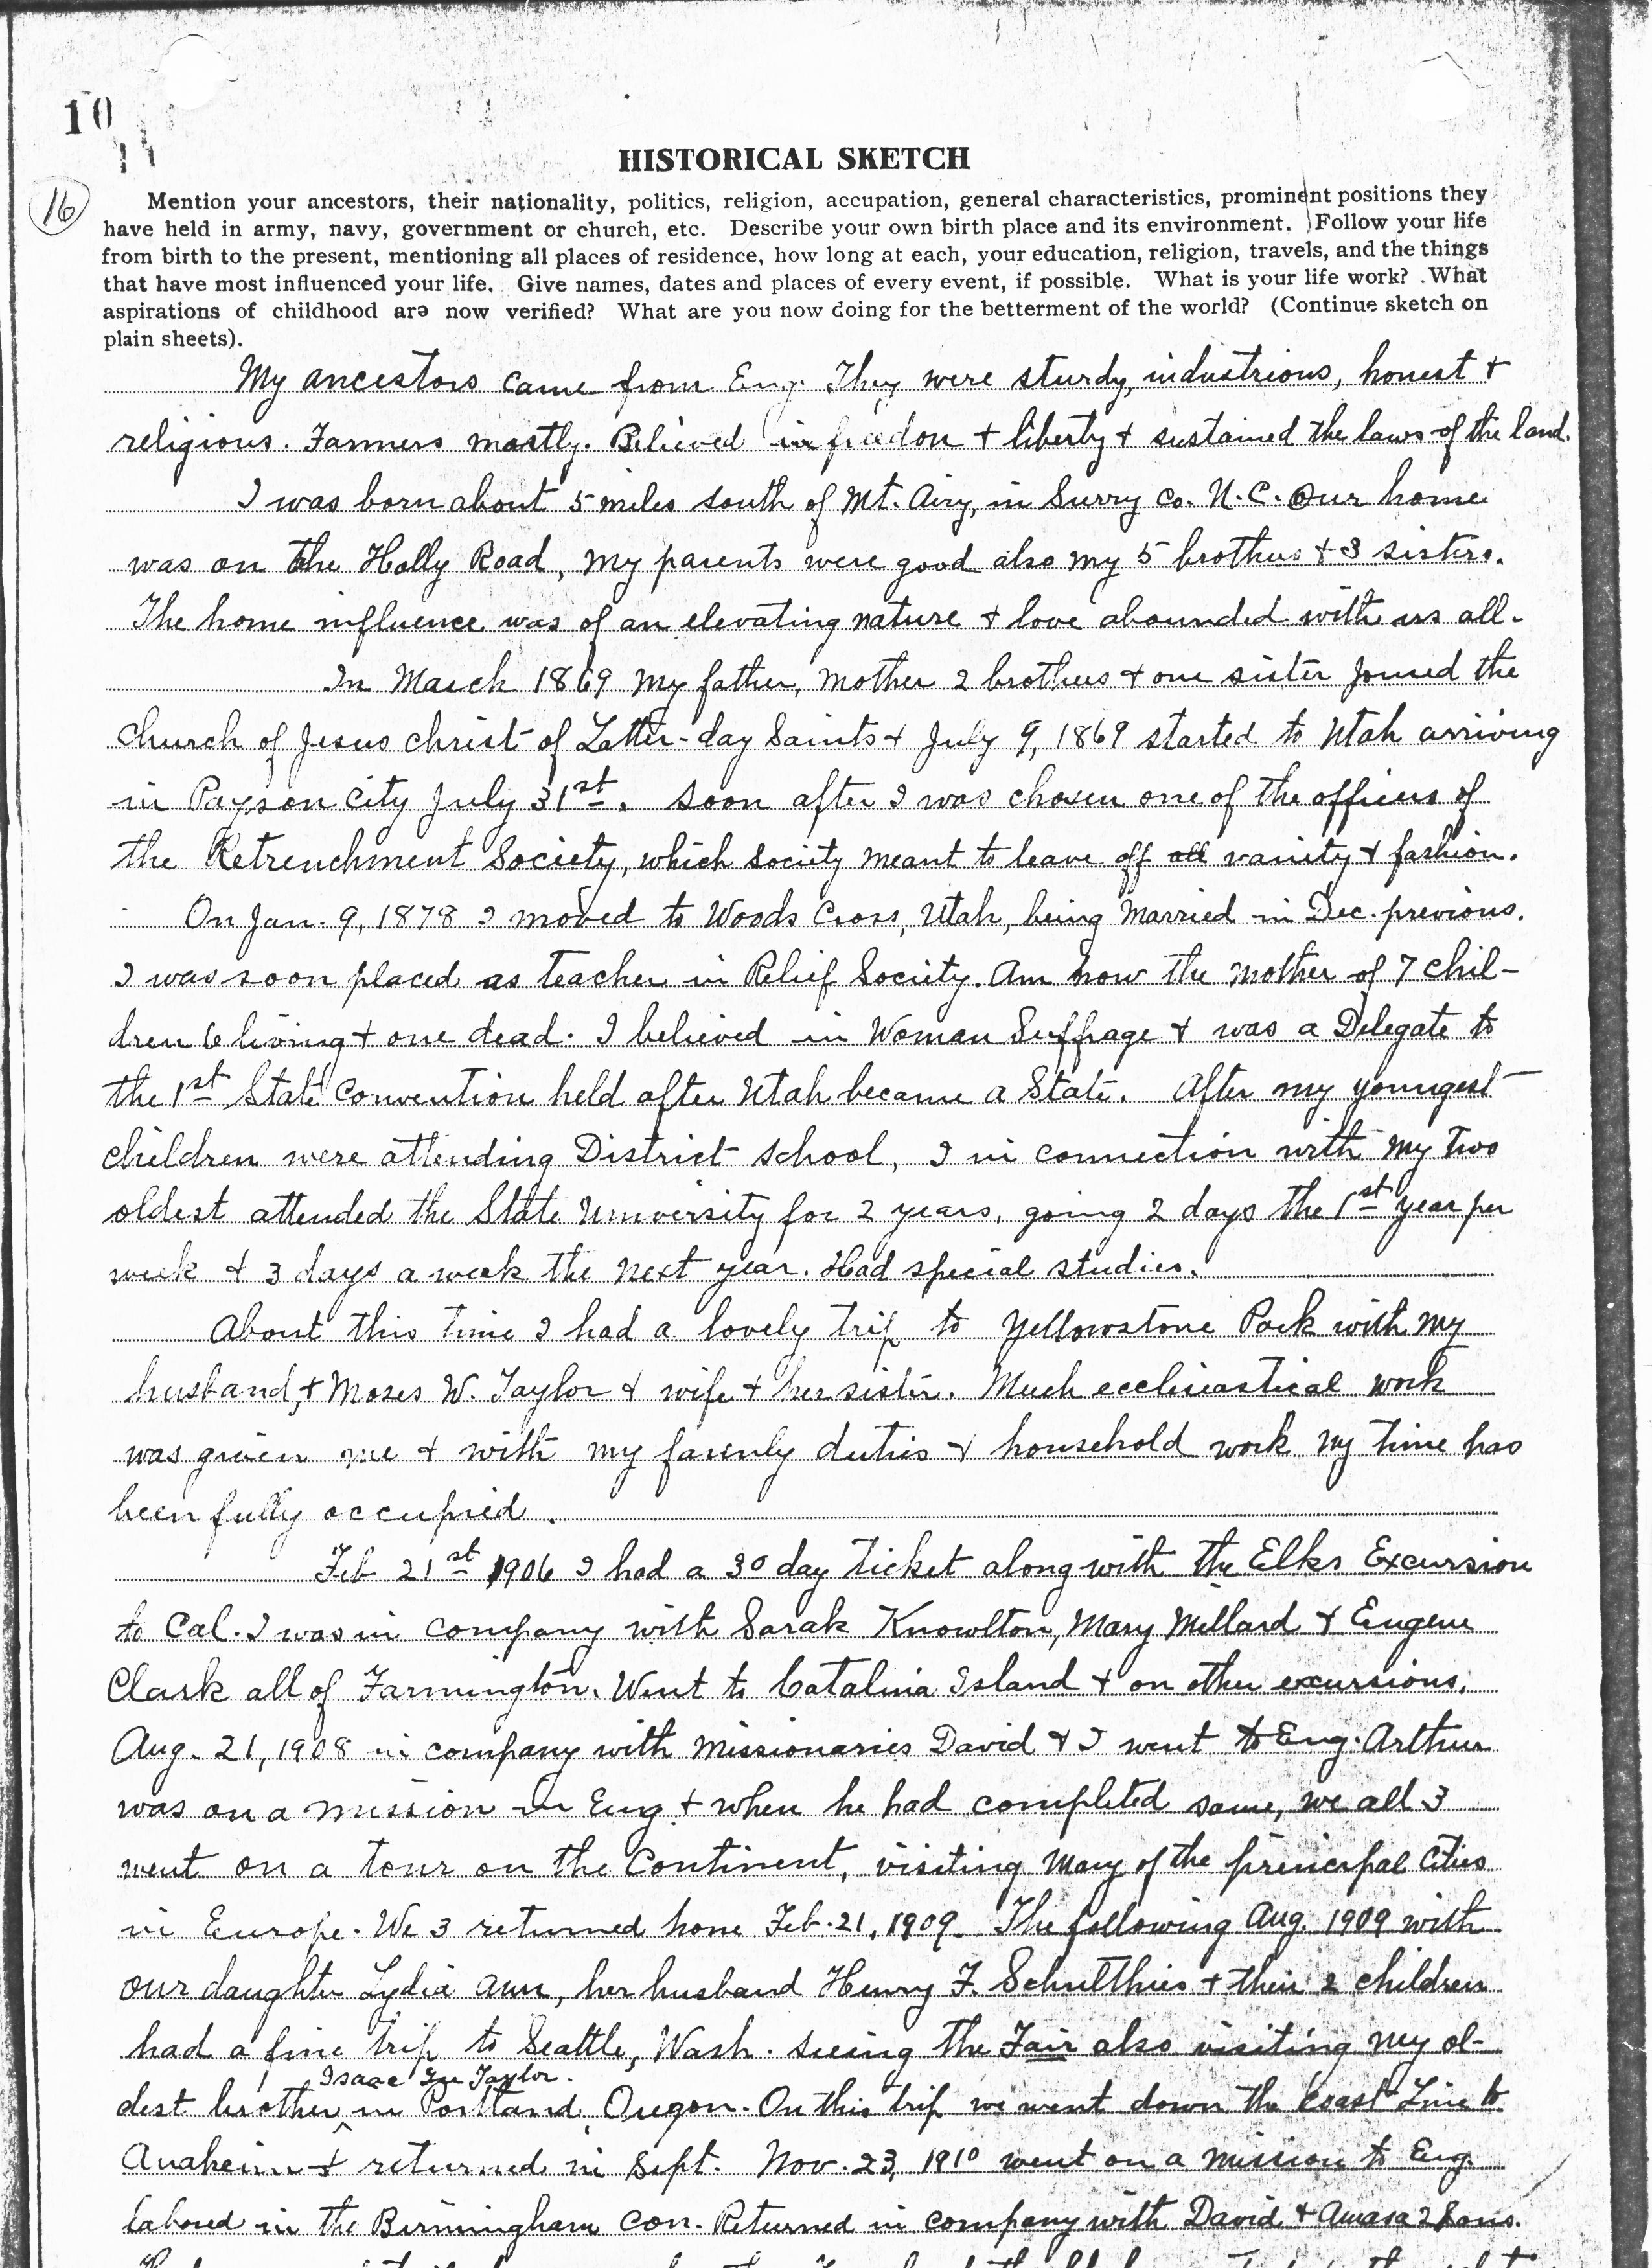 10
16
HISTORICAL SKETCH
Mention your ancestors, their nationality, politics, religion, accupation, general characteristics, prominent positions they
have held in army, navy, government or church, etc. Describe your own birth place and its environment. Follow your life
from birth to the present, mentioning all places of residence, how long at each, your education, religion, travels, and the things
that have most influenced your life. Give names, dates and places of every event, if possible. What is your life work? What
aspirations of childhood are now verified? What are you now doing for the betterment of the world? (Continue sketch on
plain sheets).
My ancestors came from Eng. They were sturdy, industrious, honest +
religious. Farmers mostly. Believed in freedon + liberty + sustained the laws of the land.
I was born about 5 miles south of Mt. Airy, in Surry Co. N.C. Our home
was on the Holly Road, my parents were good also my 5 brothers + 3 sisters.
The home influence was of an elevating nature + love abounded with us all.
In March 1869 my father, mother 2 brothers + one sister joined the
church of Jesus christ of Latter-day Saints + July 9, 1869 started to Utah arriving
in Payson city July 31st. Soon after I was chosen one of the officers of
the Retrenchment Society, which society meant to leave off all vanity + fashion.
On Jan. 9, 1878 I moved to Woods Cross, Utah, being married in Dec. previous.
I was soon placed as teacher in Relief Society. Am now the mother of 7 chil-
dren 6 living + one dead. I believed in Woman Suffrage + was a Delegate to
the 1st State Convention held after Utah became a State. After my youngest
children were attending District school, I in connection with my two
oldest attended the State University for 2 years, going 2 days the 1st year per
week + 3 days a week the next year. Had special studies.
About this time I had a lovely trip to Yellowstone Park with my
husband, + Moses W. Taylor + wife + her sister. Much eccliastical work
was given me + with my family duties + household work my time has
been fully occupied.
Feb 21st 1906 I had a 30 day ticket along with the Elks Excursion
to Cal. I was in company with Sarah Knowlton, Mary Millard + Eugene
Clark all of Farmington. Went to Catalina Island + on other excursions.
Aug. 21, 1908 in company with missionaries David + I went to Eng. Arthur
was on a mission in Eng. + when he had completed same, we all 3
went on a tour on the Continent, visiting many of the principal cities
in Europe. We 3 returned home Feb. 21, 1909. The following Aug. 1909 with
our daughter Lydia Ann, her husband Henry F. Schulthies + their 2 children
had a fine trip to Seattle, Wash. seeing the Fair also visiting my ol-
Isaac Taylor.
dest brother in Portland, Oregon. On this trip we went down the coast Line to
Anaheim + returned in Sept. Nov. 23, 1910 went on a mission to Eng.
labored in the Birmingham Con. Returned in company with David + Amasa 2 sons.